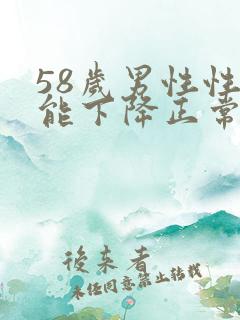 58歲男性性
能下降正常
後來者
未经同意禁止转载